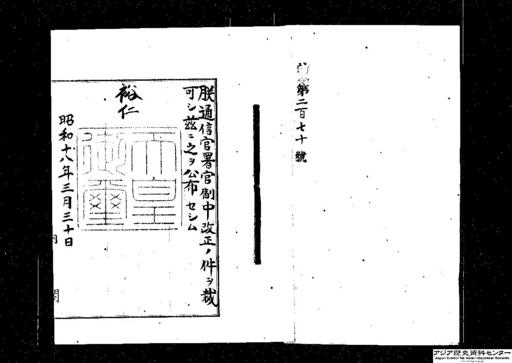 勅令第二百七十號
朕通信官署官制中改正ノ件ヲ裁
可シ茲ニ之ヲ公布セシム
裕仁
天皇御璽
昭和十八年三月三十日
内閣
アジア歴史資料センター
Japan Center for Asian Historical Records